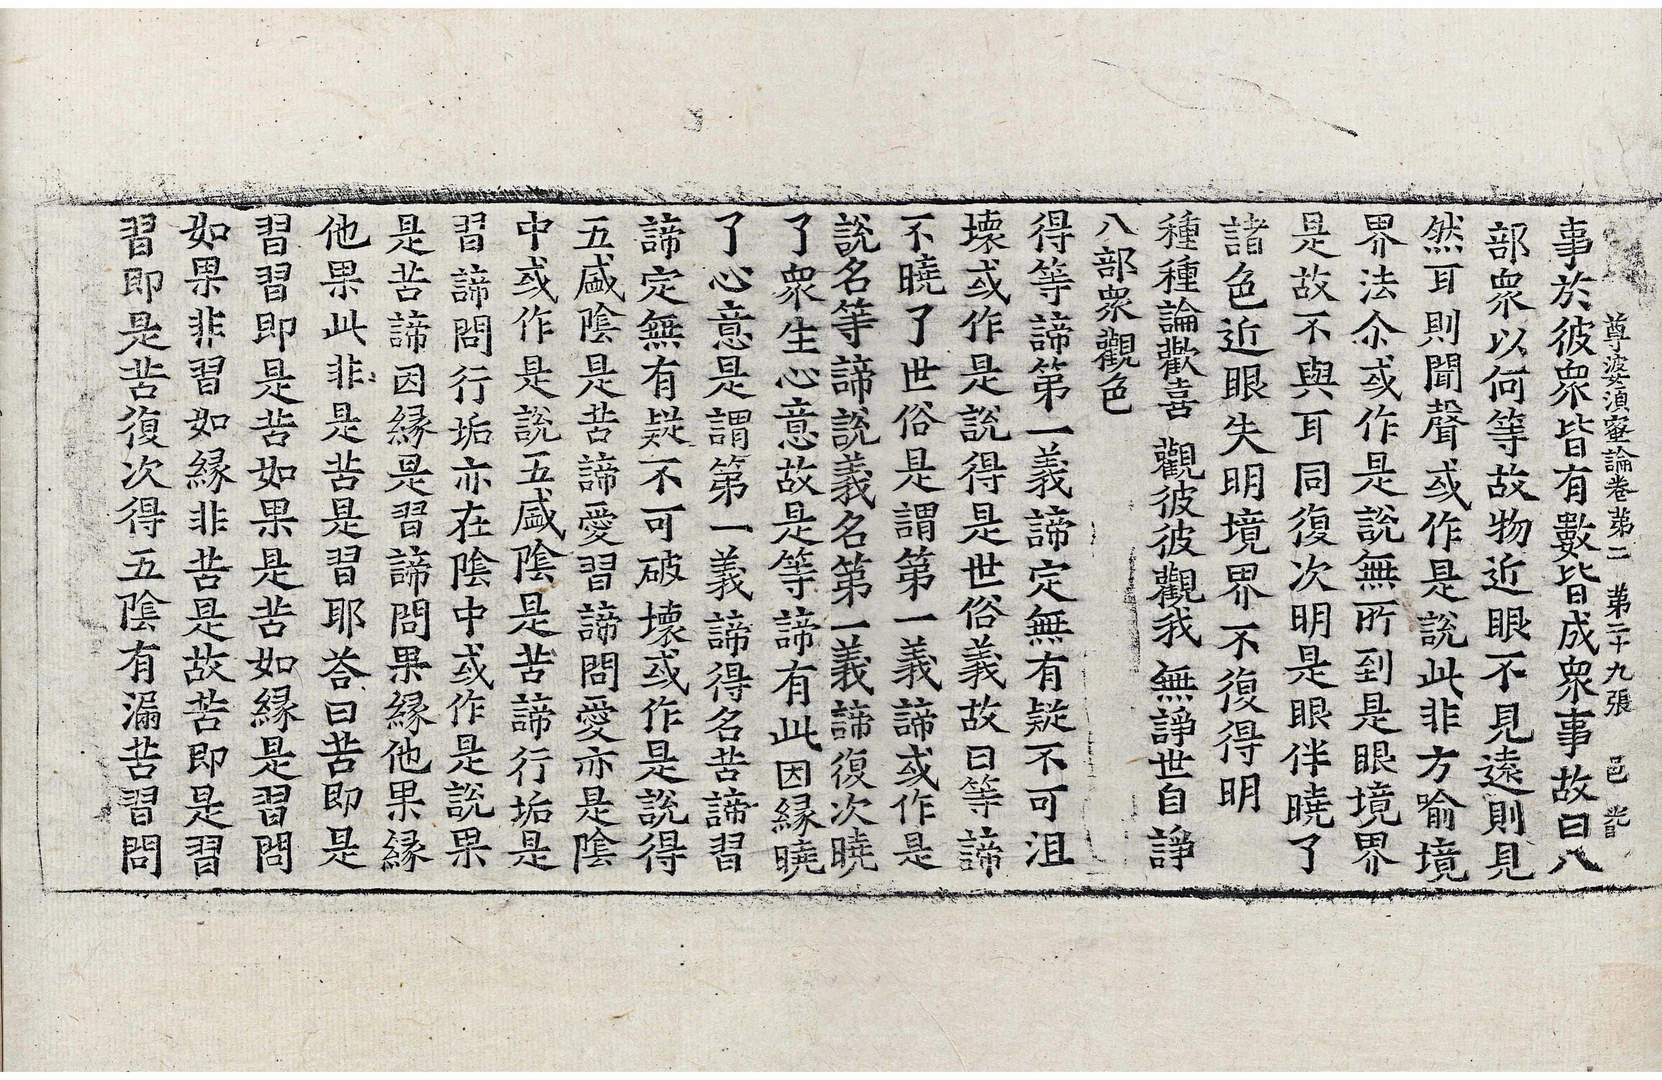 尊婆湏蜜論卷苐二 苐三十九張 邑
事於彼衆皆有數皆成衆事故曰八
部衆以何等故物近眼不見遠則見
然耳則聞聲或作是說此非方喻境
界法尒或作是說無所到是眼境界
是故不與耳同復次明是眼伴曉了
諸色近眼失明境界不復得明
種種論歡喜 觀彼彼觀我 無諍世自諍
八部衆觀色
得等諦第一義諦定無有疑不可沮
壞或作是說得是世俗義故曰等諦
不曉了世俗是謂第一義諦或作是
說名等諦說義名第一義諦復次曉
了衆生心意故是等諦有此因縁曉
了心意是謂第一義諦得名苦諦習
諦定無有疑不可破壞或作是說得
五盛陰是苦諦愛習諦問愛亦是陰
中或作是說五盛陰是苦諦行垢是
習諦問行垢亦在陰中或作是說果
是苦諦因縁是習諦問果縁他果縁
他果此非是苦是習耶荅曰苦即是
習習即是苦如果是苦如縁是習問
如果非習如縁非苦是故苦即是習
習即是苦復次得五陰有漏苦習問